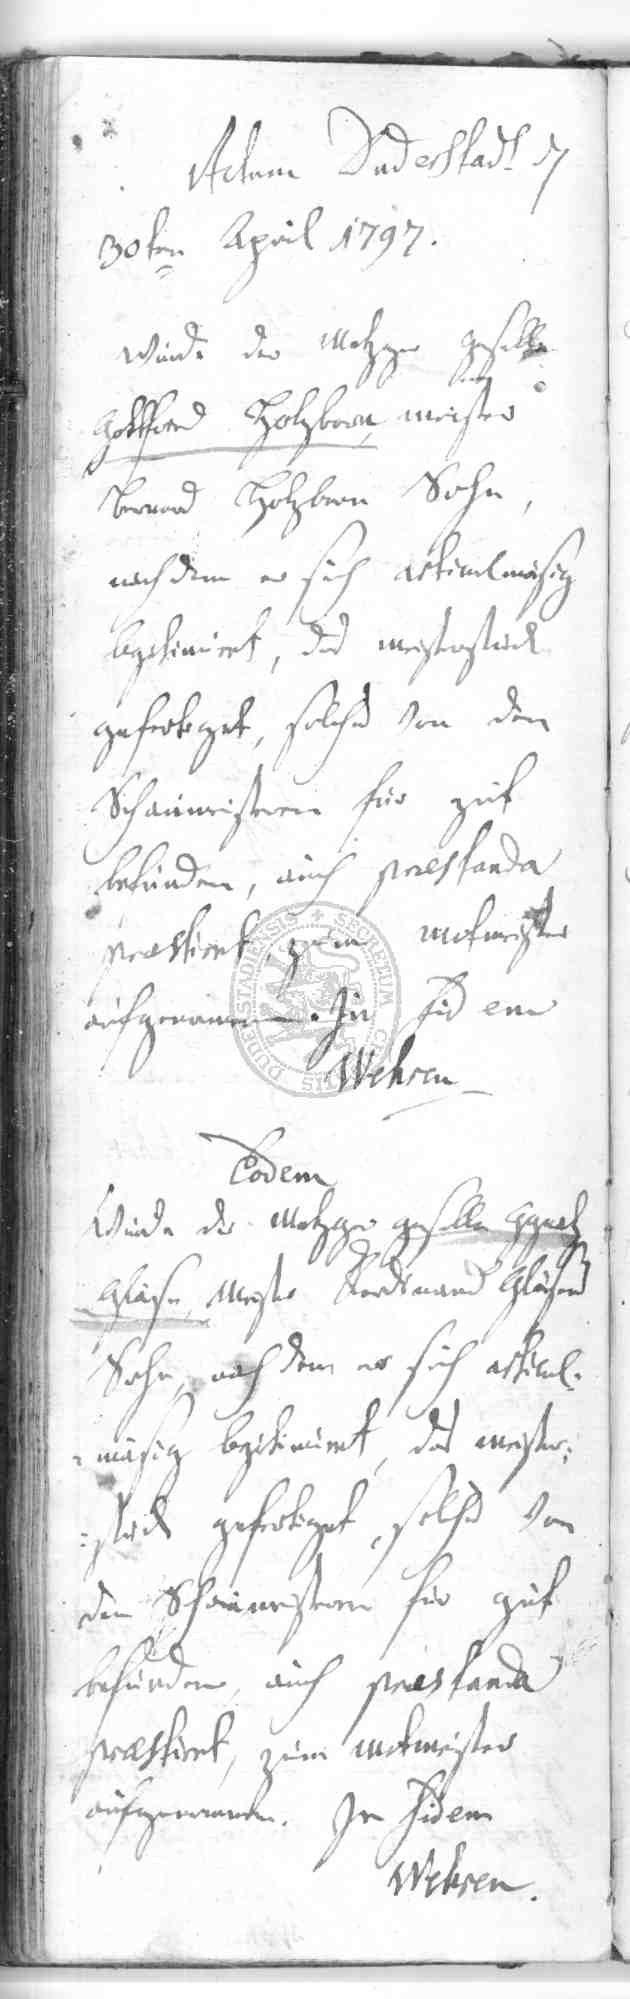 Actum Duderstadt d
30ten April 1797.
Wurde der Metzger geselle
Gottfried Holzborn, meister
Bernard Holzborn Sohn,
nachdem er sich articulmäsig
legitimirt, das meisterstück
gefertiget, solches von den
Schaumeistern für gut
befunden, auch praestanda
praestirt, zum mitmeister
aufgenommen. In fidem
DUDERSTADENSIS SECRETUM
Wehren
Eodem
Wurde der Metzger geselle
Meister Ferdinand
Sohn, nachdem er sich articul-
mäsig legitimirt, das meister-
stück gefertiget, solches von
den Schaumeistern für gut
befunden, auch praestanda
praestirt, zum mitmeister
aufgenommen. In fidem
Wehren.